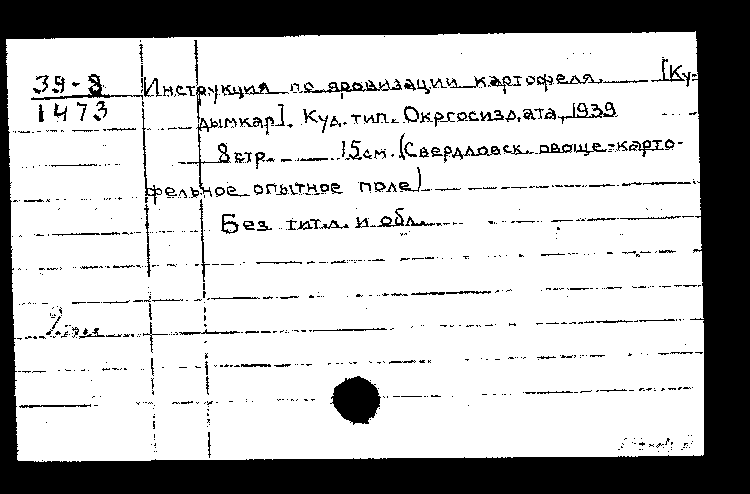 39-8
1473
Инструкция по яровизации картофеля. [Ку-
дымкар]. Куд. тип. Окргосиздата, 1939
8 стр. 15 см. (Свердловск. овоще-карто-
фельное опытное поле)
Без тит. л. и обл.